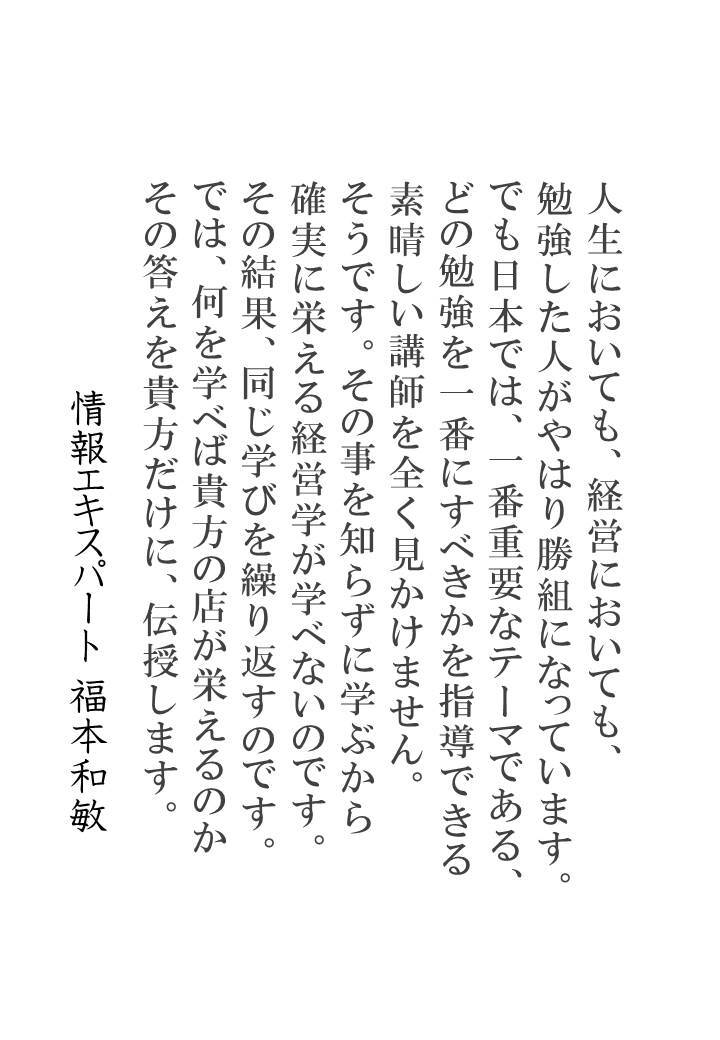 人生においても、経営においても、
勉強した人がやはり勝組になっています。
でも日本では、一番重要なテーマである、
どの勉強を一番にすべきかを指導できる
素晴しい講師を全く見かけません。
そうです。その事を知らずに学ぶから
確実に栄える経営学が学べないのです。
その結果、同じ学びを繰り返すのです。
では、何を学べば貴方の店が栄えるのか
その答えを貴方だけに、伝授します。
情報エキスパート 福本和敏